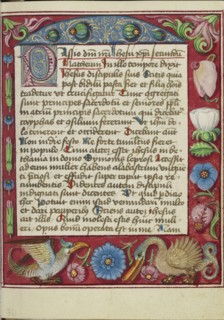 Passio dni nri ihesu xpi secundu
Matheum In illo tempore dixit
Ihesus discipulis suis Scitis quia
post biduu pasca fiet et filius
tradetur ut crucifigatur Tunc
sunt principes sacerdotu et seniores ppli
in atriu principis sacerdotu qui dicebat
et consiliu fecerunt Ut ihm do
lo tenerent et occiderent Dicebant aut
Non in die festo Ne forte tumultus fieret
in populo Cum autem esset ihesus in be
thania in domo Symonis leprosi Accessit
ad eum mulier habens alabastrum vnguen
ti preciosi et effudit super caput ipsius re
cumbentis Videntes autem discipuli
indignati sunt dicentes Ut quid perditio
hec potuit enim istud venundari multo
et dari pauperibus Sciens autem ihesus
ait illis Quid molesti estis huic mulie
ri Opus bonu operata est in me Nam